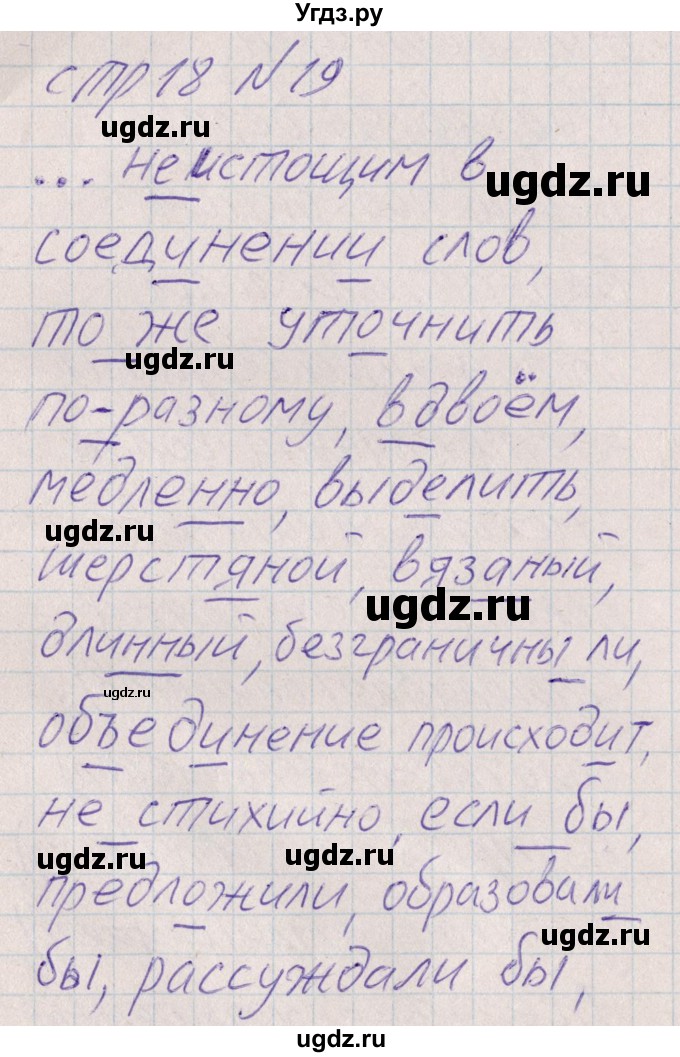 Угдз.ру
стр 18 №19
ugdz.ru
... неистощим в
ugdz.ru
соединении слов,
то же уточнить
ugdz.ru
по-разному, вдвоём,
медленно, выделить,
ugdz.ru
шерстяной, вязаный,
ugdz.ru
длинный, безграничны ли,
ugdz.ru
объединение происходит,
не стихийно, если бы,
ugdz.ru ugdz.ru
предложили, образовали
ugdz.ru
бы, рассуждали бы,
ugdz.ru